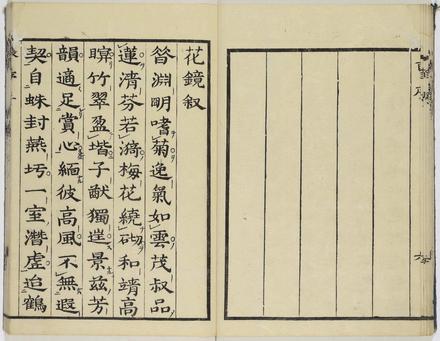 花鏡叙
昝淵明嗜菊逸氣如雲茂叔品
蓮清芬若漪梅花繞砌和靖高
竹翠盈堦子猷獨景茲芳
韻適足賞心緬彼高風不無遐
契自蛛封燕圬一室潛虛追鶴